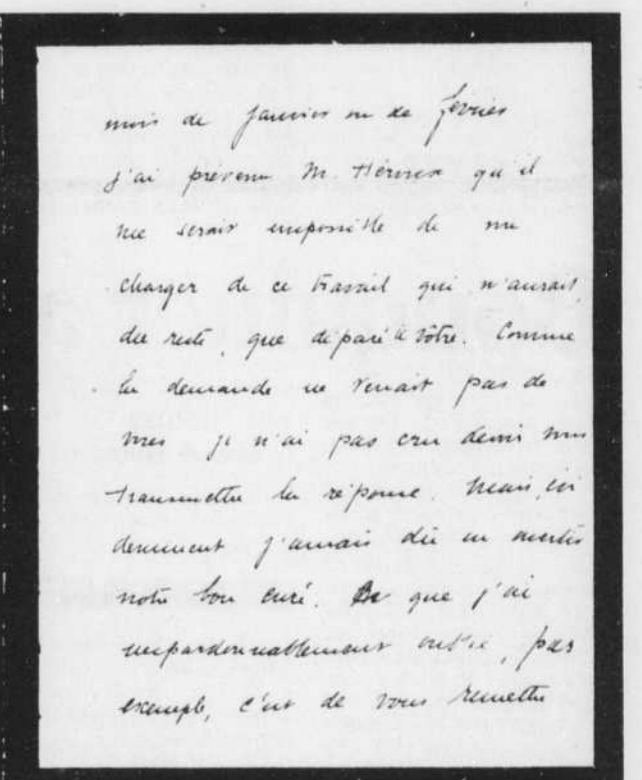 mois de janvier ou de février
j'ai prévenu M. Héroux qu'il
me serait impossible de me
charger de ce travail qui n'aurait,
du reste, que déparé le vôtre. Comme
la demande ne venait pas de
vous je n'ai pas cru devoir vous
transmettre la réponse. Mais, évi
demment j'aurais dû en avertir
notre bon curé. Ce que j'ai
impardonnablement oublié, par
exemple, c'est de vous remettre